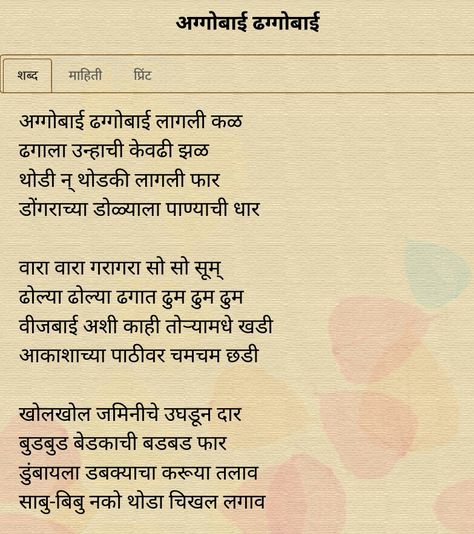 अग्गोबाई ढग्गोबाई
शब्द माहिती प्रिंट
अग्गोबाई ढग्गोबाई लागली कळ
ढगाला उन्हाची केवढी झळ
थोडी न् थोडकी लागली फार
डोंगराच्या डोळ्याला पाण्याची धार
वारा वारा गरागरा सो सो सूम्
ढोल्या ढोल्या ढगात ढुम ढुम ढुम
वीजबाई अशी काही तोऱ्यामधे खडी
आकाशाच्या पाठीवर चमचम छडी
खोलखोल जमिनीचे उघडून दार
बुडबुड बेडकाची बडबड फार
डुंबायला डबक्याचा करूया तलाव
साबु-बिबु नको थोडा चिखल लगाव